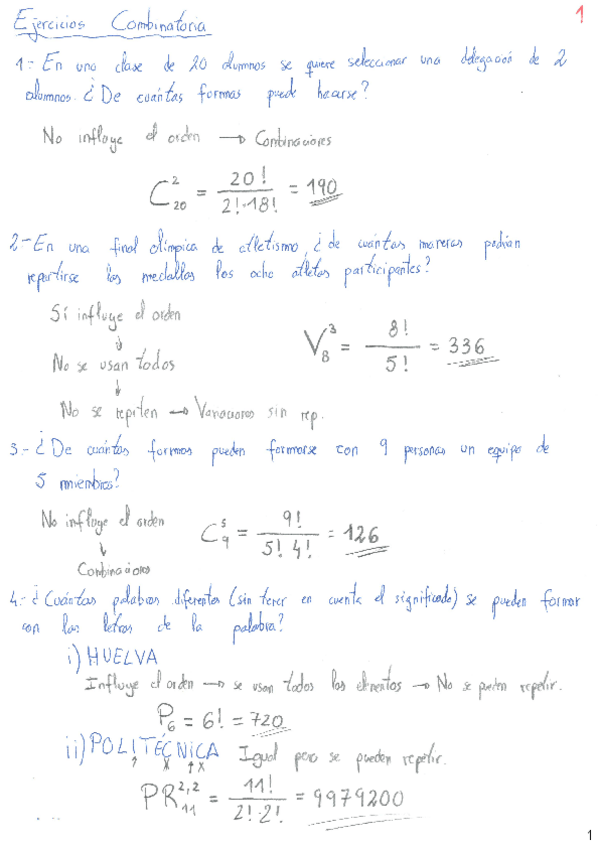 Ejercicios Combinatoria
1
1.- En una clase de 20 alumnos se quiere seleccionar una delegación de 2
alumnos. ¿De cuántas formas puede hacerse?
No influye el orden → Combinaciones
C₂₀² = 20! / 2!·18! = 190
2.- En una final olímpica de atletismo, ¿de cuántas maneras podrían
repartirse las medallas los ocho atletas participantes?
Sí influye el orden
↓
No se usan todos
↓
No se repiten → Variaciones sin rep.
V₈³ = 8! / 5! = 336
3.- ¿De cuántas formas pueden formarse con 9 personas un equipo de
5 miembros?
No influye el orden
↓
Combinaciones
C₉⁵ = 9! / 5! 4! = 126
4.- ¿Cuántas palabras diferentes (sin tener en cuenta el significado) se pueden formar
con las letras de la palabra?
i) HUELVA
Influye el orden → se usan todos los elementos → No se pueden repetir.
P₆ = 6! = 720
ii) POLITÉCNICA Igual pero se pueden repetir.
PR₁₁²,² = 11! / 2!·2! = 9979200
1